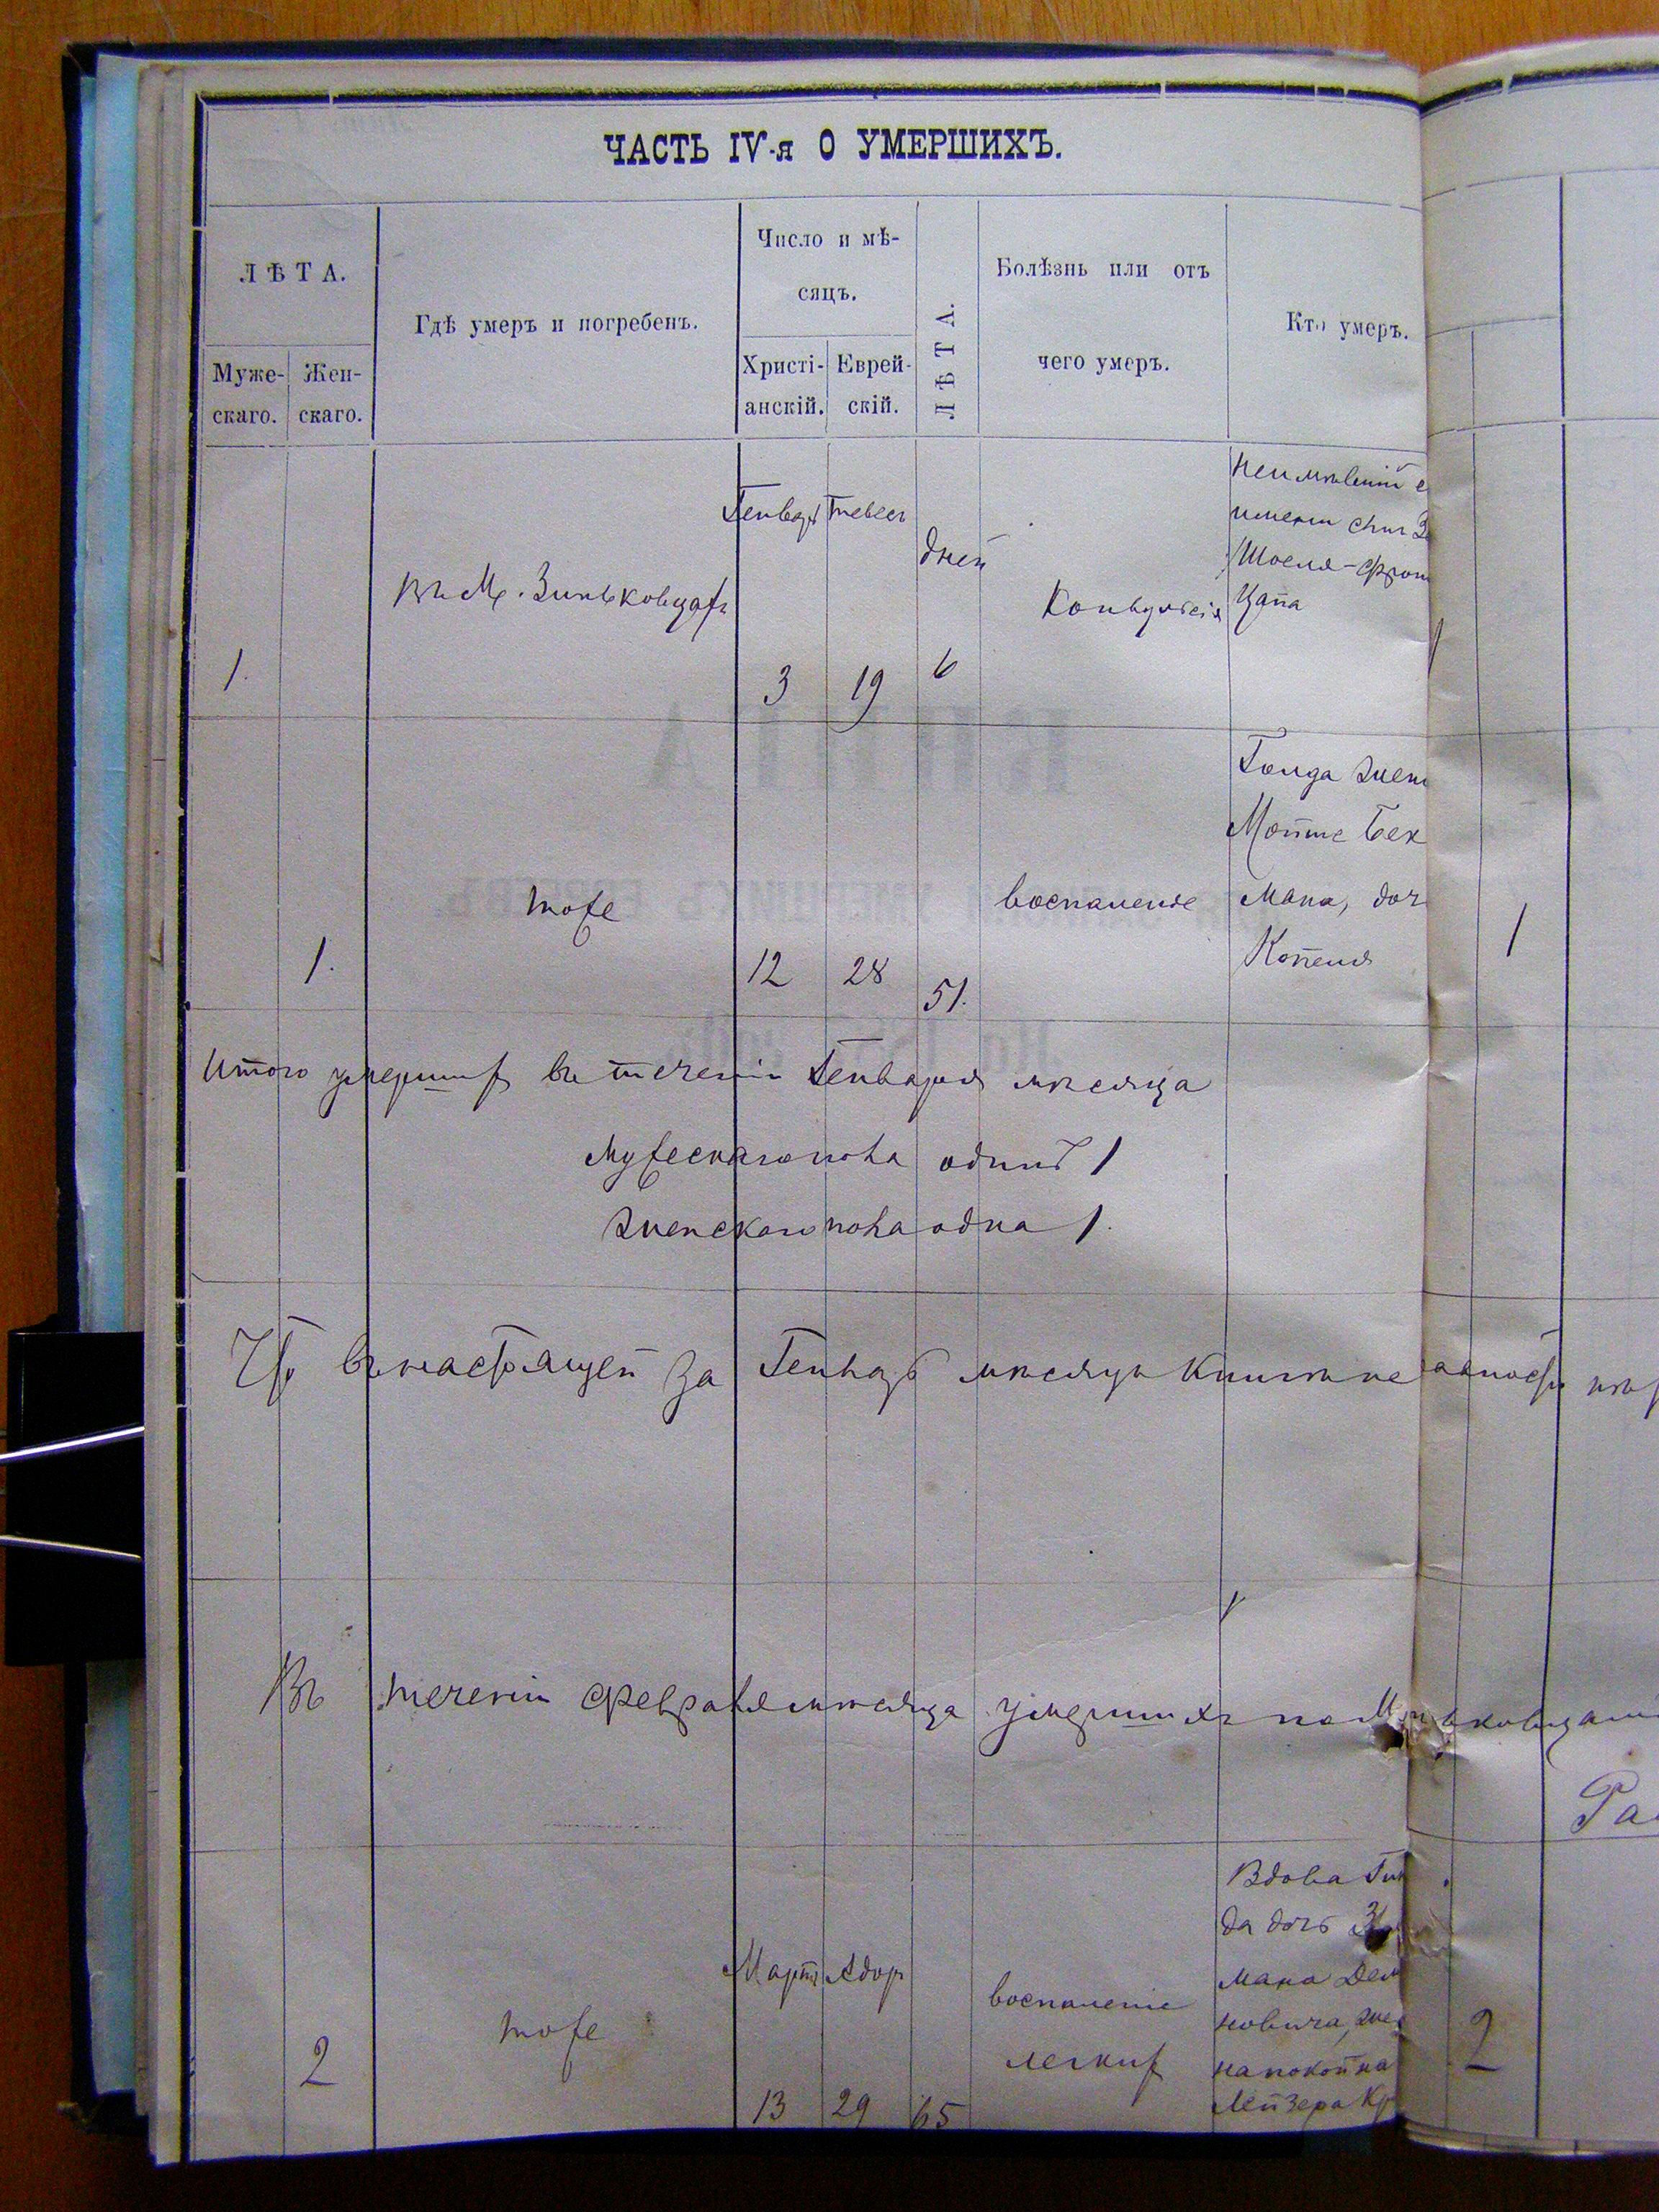 ЧАСТЬ IV-я О УМЕРШИХЪ.
ЛѢТА.
Муже-
скаго.
Жен-
скаго.
Гдѣ умеръ и погребенъ.
Число и мѣ-
сяцъ.
Христі-
анскій.
Еврей-
скій.
ЛѢТА.
Болѣзнь или отъ
чего умеръ.
Кто умеръ.
1.
въ М. Зиньковцахъ
Генваря
3
Тевесъ
19
дней
6
Конвульсія
Неимѣвшій
имени сынъ
Шоеля-Фроим
Цапа
1.
тоже
12
28
51.
воспаленіе
Голда жен
Мотте Бек
мана, доч
Копеля
1
Итого умершихъ въ теченіи Генваря мѣсяца
Мужескаго пола одинъ 1
Женскаго пола одна 1.
Что въ настоящей за Генварь мѣсяцъ книгѣ не
Въ теченіи Февраля мѣсяца умершихъ по М
Ра
2
тоже
Мартъ
13
Адоръ
29
65
воспаленіе
легкихъ
Вдова
да дочь
мана
новича, же
на покойна
Лейзера Кр
2